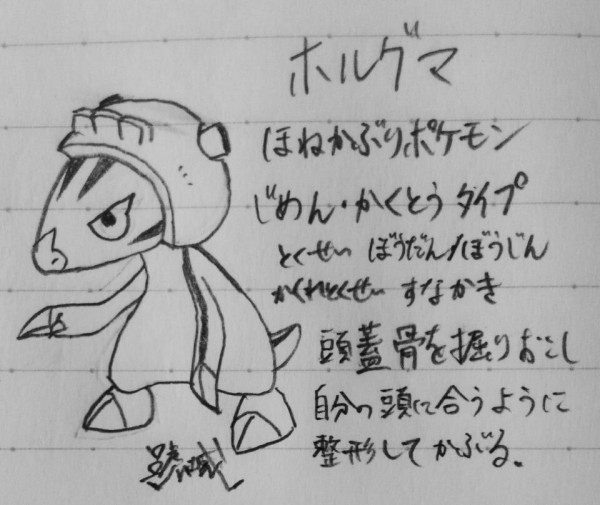 ホルグマ
ほねかぶりポケモン
じめん・かくとうタイプ
とくせい ぼうだん/ぼうじん
かくれとくせい すなかき
頭蓋骨を掘りおこし
自分の頭に合うように
整形してかぶる。